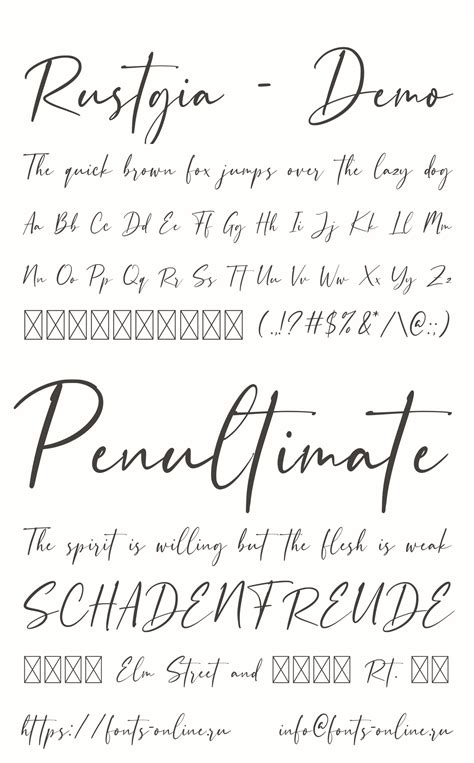 Rustgia - Demo
The quick brown fox jumps over the lazy dog
Aa Bb Cc Dd Ee Ff Gg Hh Ii Jj Kk Ll Mm
Nn Oo Pp Qq Rr Ss Tt Uu Vv Ww Xx Yy Zz
(.,!?#$%&*/\@:;)
Penultimate
The spirit is willing but the flesh is weak
SCHADENFREUDE
Elm Street and Rt.
https://fonts-online.ru info@fonts-online.ru